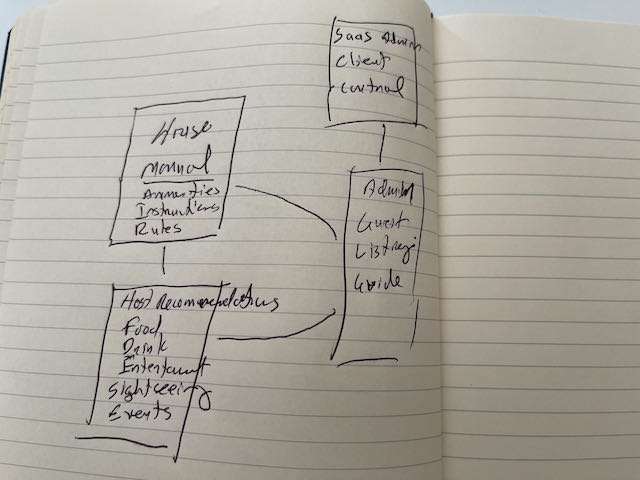 SaaS Admin
Client
Control
House
Manual
Ammenities
Instructions
Rules
Admin
Guest
Listings
Guide
Host Recommendations
Food
Drink
Entertainment
Sightseeing
Events